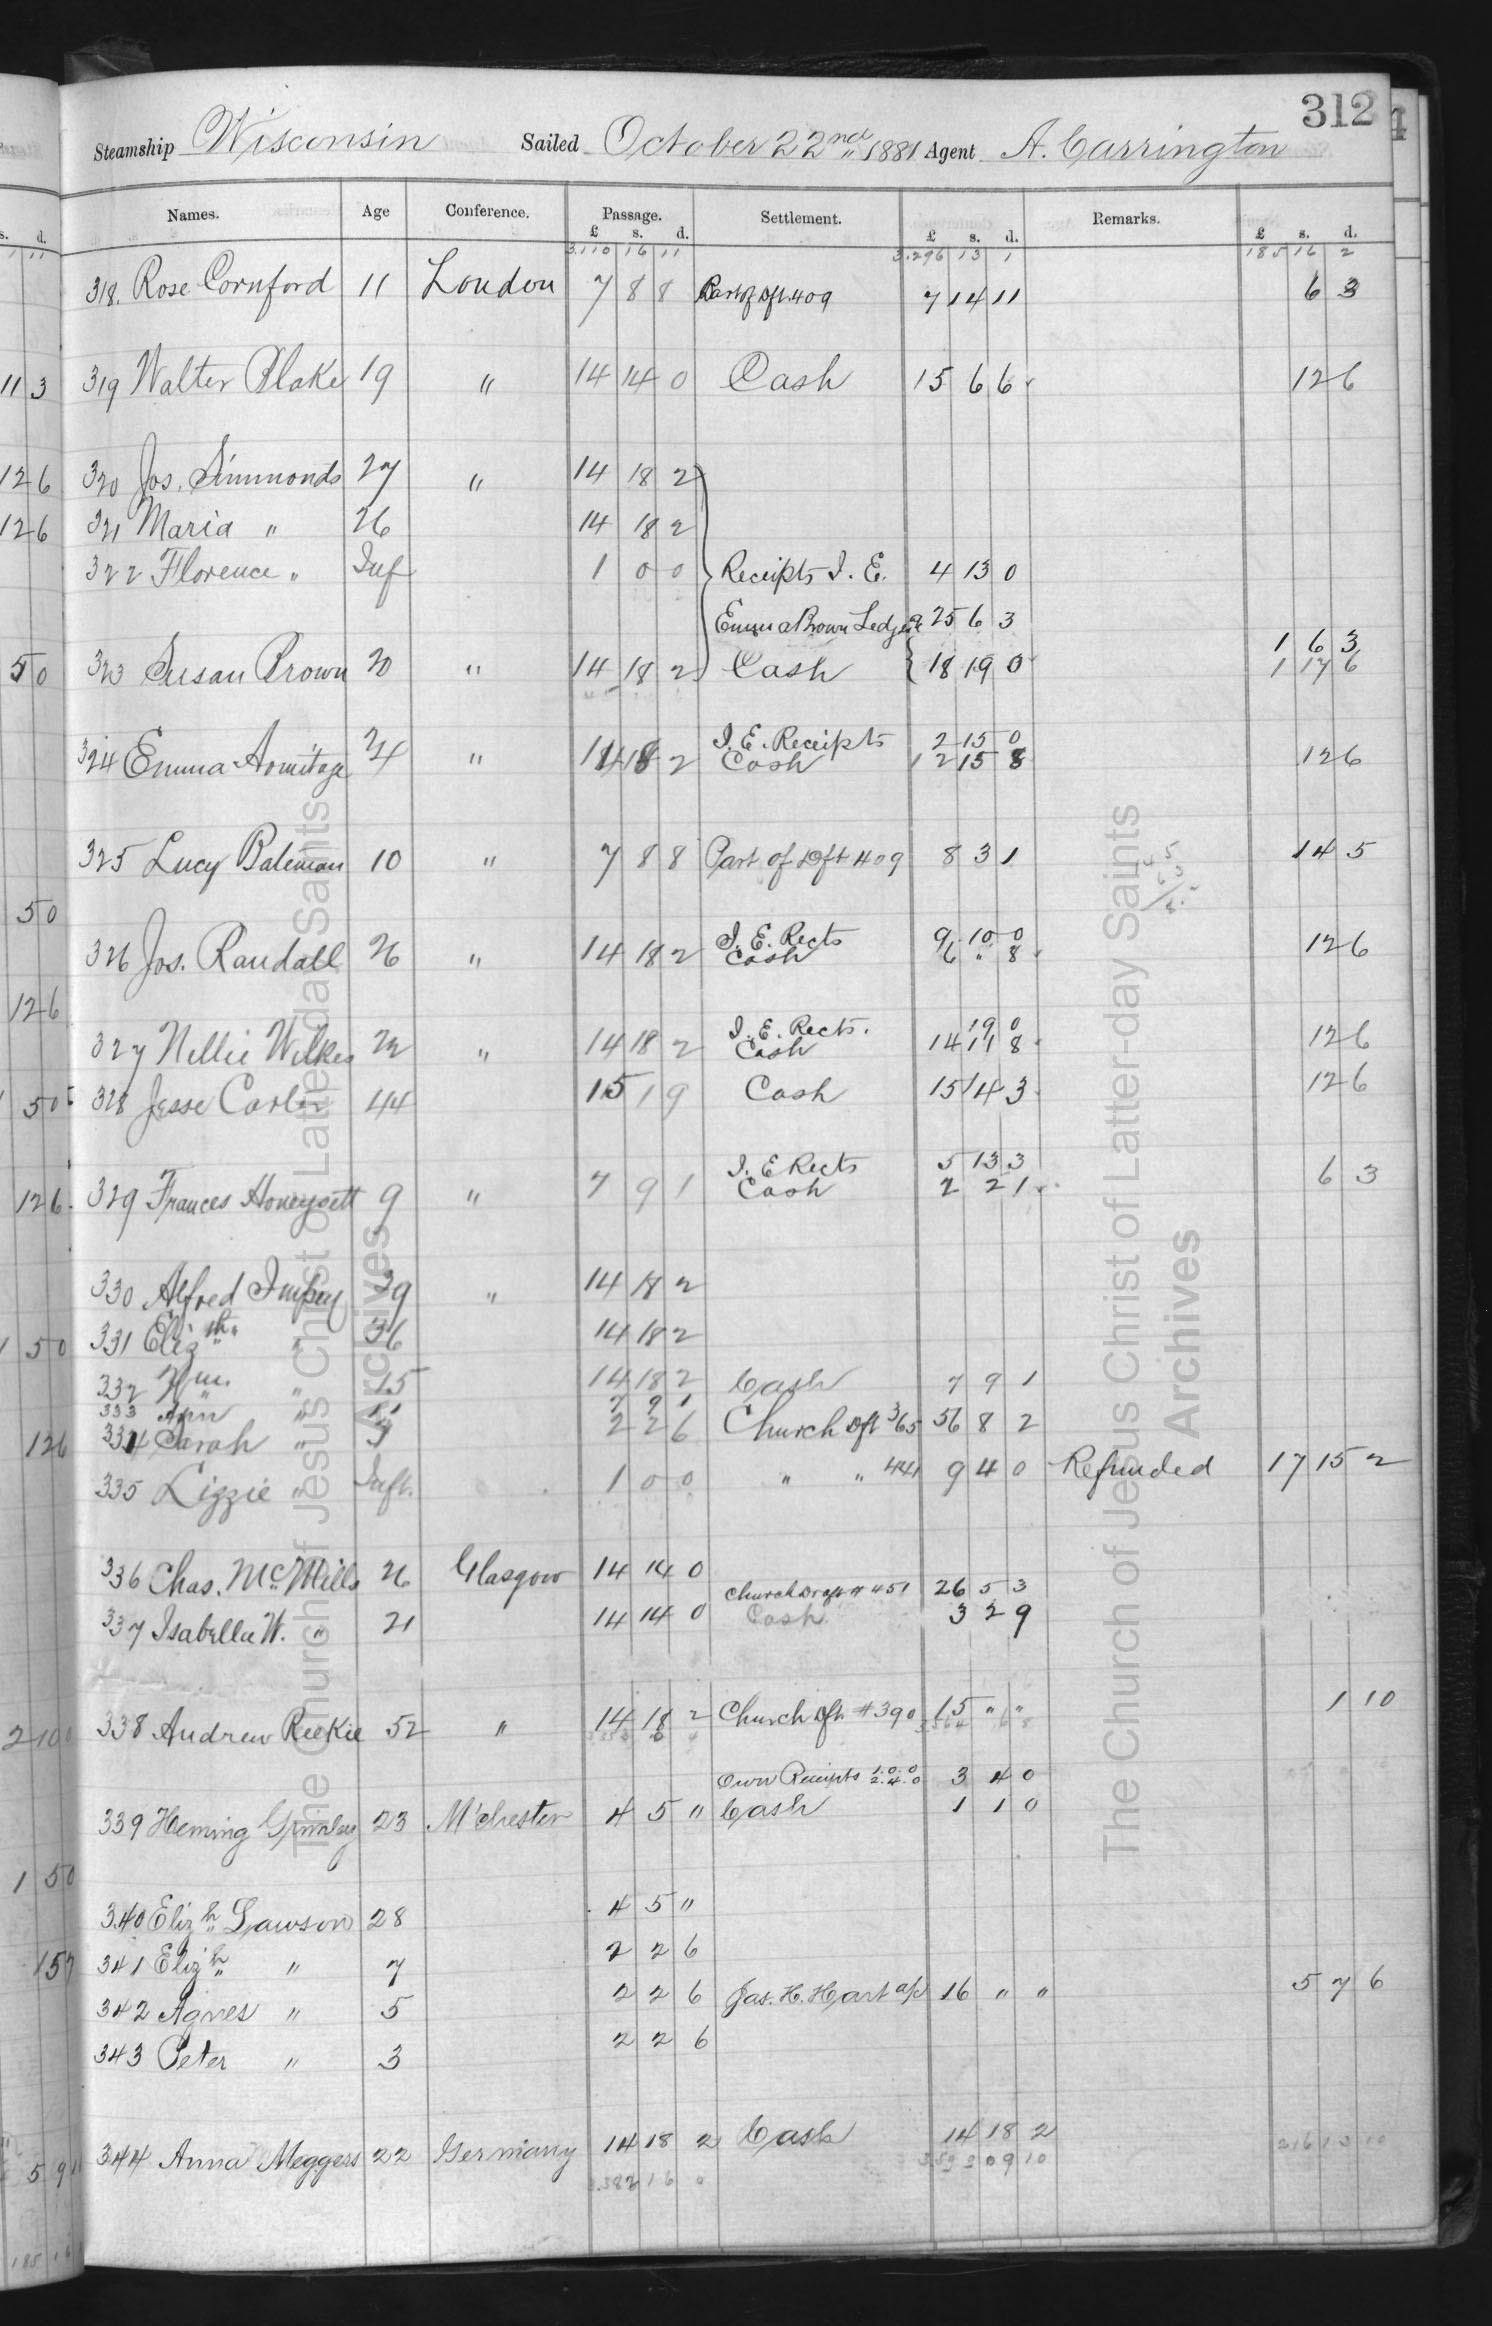 312
Steamship Wisconsin Sailed October 22nd 1881 Agent A. Carrington
Names. Age Conference. Passage. Settlement. Remarks.
£ s. d. £ s. d. £ s. d.
3.110 16 11 3.296 13 1 185 16 2
318. Rose Cornford 11 London 7 8 8 Part of Dft. 409 7 14 11 6 3
319 Walter Blake 19 " 14 14 0 Cash 15 6 6 12 6
320 Jos. Simmonds 27 " 14 18 2
321 Maria " 26 14 18 2
322 Florence " Inf 1 0 0 Receipts I. E. 4 13 0
Emma Brown Ledger 25 6 3
1 6 3
323 Susan Brown 20 " 14 18 2 Cash 18 19 0 1 17 6
I. E. Receipts 2 15 0
324 Emma Armitage 24 " 14 18 2 Cash 12 15 8 12 6
325 Lucy Bateman 10 " 7 8 8 Part of Dft 409 8 3 1 14 5
I. E. Rects 9 10 0
326 Jos. Randall 26 " 14 18 2 Cash 6 " 8 12 6
I. E. Rects. 19 0
327 Nellie Wilkes 22 " 14 18 2 Cash 14 11 8 12 6
328 Jesse Carter 44 15 1 9 Cash 15 14 3 12 6
I. E Rects 5 13 3
329 Frances Honeysett 9 " 7 9 1 Cash 2 2 1 6 3
330 Alfred Impey 39 " 14 18 2
331 Elizth " 36 14 18 2
332 Wm. " 15 14 18 2 Cash 7 9 1
333 Ann " 11 7 9 1
334 Sarah " 3 2 2 6 Church Dft 365 56 8 2
335 Lizzie " Inft. 1 0 0 " " 441 9 4 0 Refunded 17 15 2
336 Chas. Mc. Mills 26 Glasgow 14 14 0
Church Draft # 451 26 5 3
337 Isabella W. " 21 14 14 0 Cash 3 2 9
338 Andrew Reekie 52 " 14 18 2 Church Dft. # 390 15 " " 1 10
Own Receipts 1.0.0 2.4.0 3 4 0
339 Heming 23 M'chester 4 5 " Cash 1 1 0
340 Elizh Lawson 28 4 5 "
341 Elizh " 7 2 2 6
342 Agnes " 5 2 2 6 Jas. H. Hart a/c 16 " " 5 7 6
343 Peter " 3 2 2 6
344 Anna Meggers 22 Germany 14 18 2 Cash 14 18 2
3.382 16 0
The Church of Jesus Christ of Latter-day Saints
Archives
The Church of Jesus Christ of Latter-day Saints
Archives